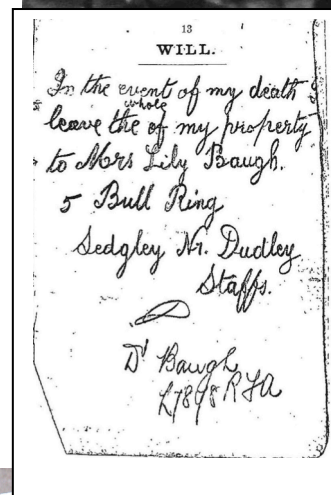 13
WILL.
In the event of my death I
whole
leave the of my property
to Mrs Lily Baugh.
5 Bull Ring
Sedgley Nr. Dudley
Staffs.
Dr Baugh
L7898 RFA